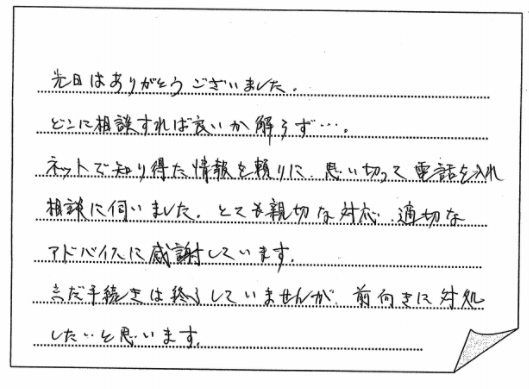 先日はありがとうございました。
どこに相談すれば良いか解らず…。
ネットで知り得た情報を頼りに、思い切って電話を入れ
相談に伺いました。とても親切な対応、適切な
アドバイスに感謝しています。
まだ手続きは終了していませんが、前向きに対処
したいと思います。